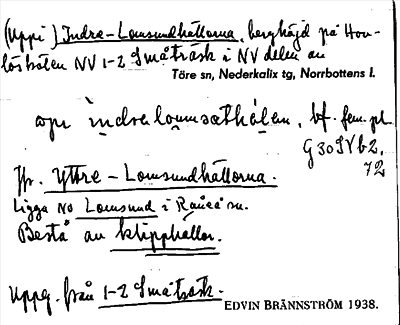 (Uppi) Indre-Lomsundhällorna, berghöjd på Hon-
löshölen NV 1-2 Småträsk i NV delen av
Töre sn, Nederkalix tg, Norrbottens l.
bf. fem. pl.
G30SVb2.
72
Jfr. Yttre-Lomsundhällorna.
Ligga NO Lomsund i Råneå sn.
Bestå av klipphällor.
Uppg. från 1-2 Småträsk.
EDVIN BRÄNNSTRÖM 1938.